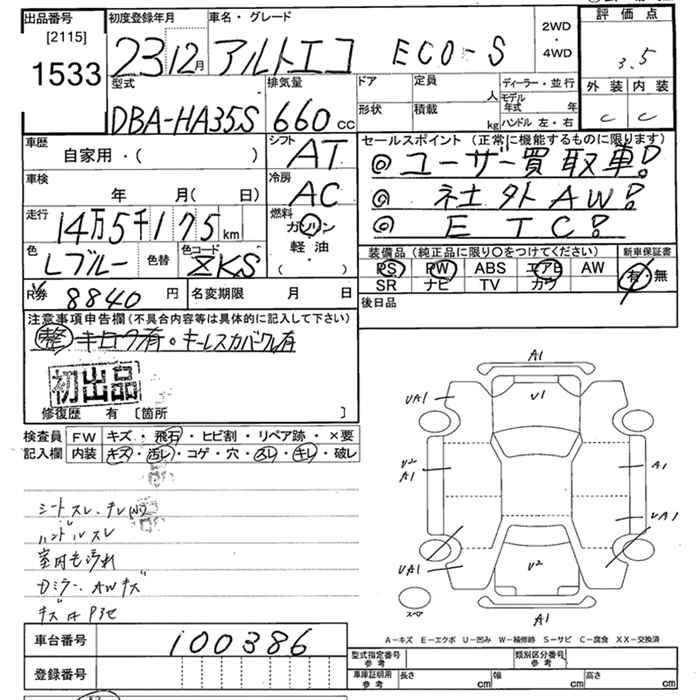 出品番号
[2115]
1533
初度登録年月
23 12月
車名・グレード
アルトエコ ECO-S
2WD
・
4WD
評価点
3.5
外装 内装
C C
型式
DBA-HA35S
排気量
660 cc
ドア
定員 人
形状
積載 kg
ディーラー・並行
モデル年式 年
ハンドル 左・右
車歴
自家用・( )
シフト
AT
セールスポイント (正常に機能するものに限ります)
◎ユーザー買取車!
◎社外AW!
◎ETC!
車検
年 月( 日)
冷房
AC
走行
14万5千175 km
燃料
ガソリン
軽油
・( )
色
Lブルー
色替
色コード
ZKS
装備品 (純正品に限り〇をつけてください)
PS PW ABS エアB AW
SR ナビ TV カワ
新車保証書
有・無
R券 8840 円
名変期限 月 日
後日品
注意事項申告欄(不具合内容等は具体的に記入して下さい)
整 キロク有。キーレスカバーワレ有
初出品
修復歴 有 [箇所 ]
検査員
記入欄
FW キズ・飛石・ヒビ割・リペア跡・×要
内装 キズ・汚レ・コゲ・穴・スレ・キレ・破レ
シートスレ、チレ
ハンドルスレ
室内も汚れ
Dミラー、AWキズ
A1
UA1
U1
U2
A1
A1
UA1
UA1
U2
A1
スペア
A−キズ E−エクボ U−凹み W−補修跡 S−サビ C−腐食 XX−交換済
車台番号 100386
登録番号
型式指定番号
参考
類別区分番号
参考
車庫証明用
参考
長さ cm 幅 cm 高さ cm